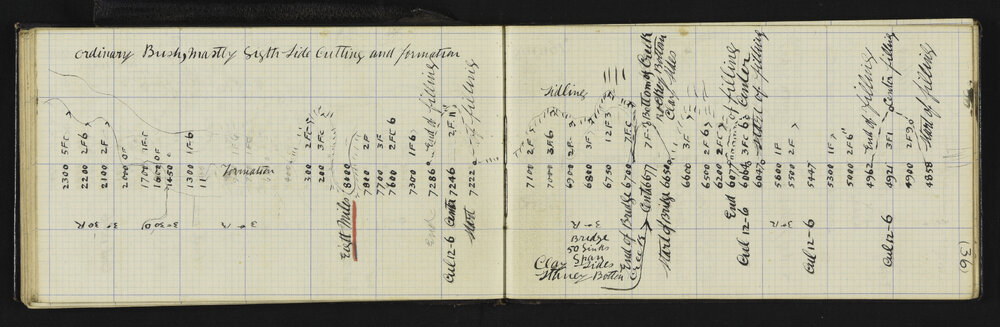 ordinary Bush, mostly Sigth-Side Cutting and formation
2300 5FC
2200 2F6
2100 2F
2000 0F
1700 1FC
1600 0F
1450
1300 1F-6
Formation
3-30R
3-R
3-R
300 2F-5
200 3FC
Eight Miles 8000
7800 2F
7700 3F
7600 2FC 6
7300 1F6
End 7286 End of filling
Cul 12-6 Center 7246 2F 11"
Start 7222 of-filling
Sidling
7100 2F
7000 3F6
6900 2F
6800 3F
6750 12F3
End of Bridge 6700 7FC
Creek Center 6677 7F-5 Bottom of Creek
Rocky Botton
Clay Sides
Start of Bridge 6650
3-R
Bridge
50 links
Span
Clay Sides
Stoney Botton
6600 3F
6500 2F6
6200 2F
End 6077 End of filling
Cul 12-6 6060 3FC 6 Center
6040 Start of filling
3-R
5800 1F
5500 2F
Cul 12-6 5447
5300 1F
5000 2F6"
4962 End of filling
Cul 12-6 4921 3F1 Center filling
4900 2F20
4858 Start of filling
(36)